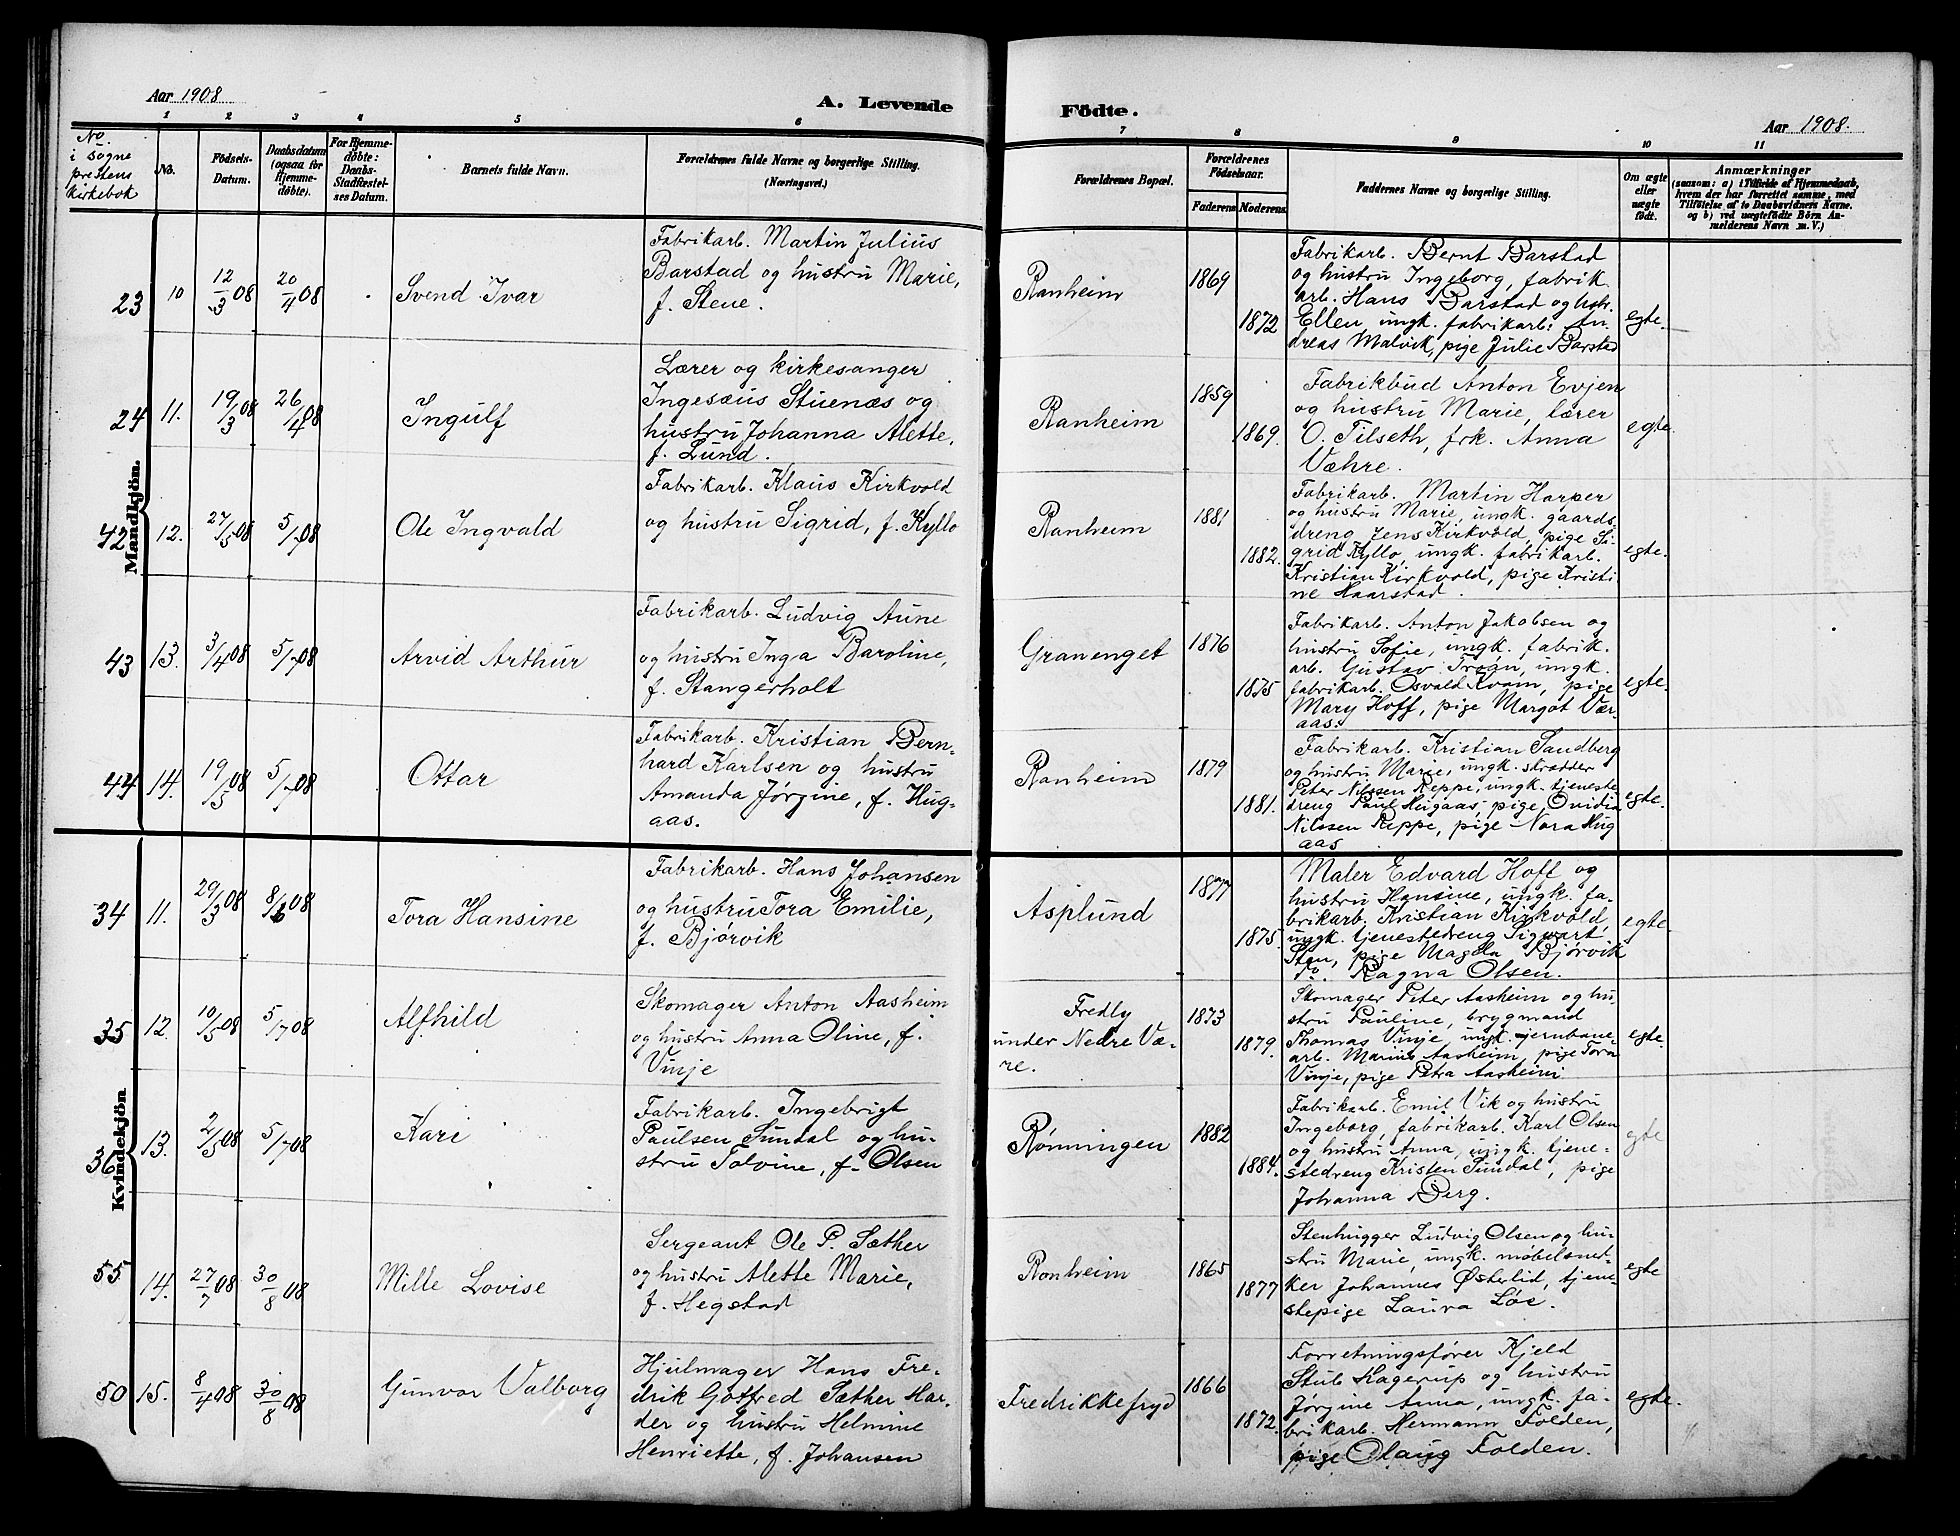 Aar 1908
A. Levende
Födte.
Aar 1908.
1 2 3 4 5 6 7 8 9 10 11
No.
i sogne
prestens
kirkebok
No.
Födsels-
Datum.
Daabsdatum
(ogsaa for
Hjemme-
döbte).
For Hjemme-
döbte:
Daabs-
Stadfæstel-
ses Datum.
Barnets fulde Navn.
Forældrenes fulde Navne og borgerlige Stilling.
(Næringsvei.)
Forældrenes Bopæl.
Forældrenes
Födselsaar.
Faderens Moderens
Faddernes Navne og borgerlige Stilling.
Om ægte
eller
uægte
födt.
Anmærkninger
(saasom: a) i Tilfælde af Hjemmedaab,
hvem der har forrettet samme, med
Tilföielse af to Daabsvidners Navne.
og b) ved uægtefödte Börn An-
melderens Navn m. V.)
Mandkjön.
23 10 12/3 08 20/4 08 Svend Ivar
Fabrikarb. Martin Julius
Barstad og hustru Marie,
f. Stene.
Ranheim 1869 1872
Fabrikarb. Bernt Barstad
og hustru Ingeborg, fabrik.
arb. Hans Barstad og hstr.
Ellen ungk. fabrikarb. An
dreas Malvik, pige Julie Barstad
egte.
24 11. 19/3 08 26/4 08 Ingulf
Lærer og kirkesanger
Ingesæus Stuenæs og
hustru Johanna Alette,
f. Lund.
Ranheim 1859 1869.
Fabrikbud Anton Evjen
og hustru Marie, lærer
O. Tilseth, frk. Anna
Væhre.
egte.
42 12. 27/5 08 5/7 08 Ole Ingvald
Fabrikarb. Klaus Kirkvold
og hustru Sigrid, f. Kyllo
Ranheim 1881 1882.
Fabrikarb. Martin Harper
og hustru Marie, ungk. gaards
dreng Jens Kirkvold, pige Si
grid Kyllo, ungk. fabrikarb.
Kristian Kirkvold, pige Kristi
ne Haarstad.
egte.
43 13. 3/4 08 5/7 08 Arvid Arthur
Fabrikarb. Ludvig Aune
og hustru Inga Baroline,
f. Stangerholt
Granenget 1876 1875
Fabrikarb. Anton Jakobsen og
hustru Sofie, ungk. fabrik.
arb. Gustav Troan, ungk.
fabrikarb. Osvald Kvam, pige
Mary Hoff, pige Margot Vær-
aas.
egte.
44 14. 19/5 08 5/7 08 Ottar
Fabrikarb. Kristian Bern-
hard Karlsen og hustru
Amanda Jørgine, f. Hug-
aas.
Ranheim 1879 1881.
Fabrikarb. Kristian Sandberg
og hustru Marie, ungk. skrædder
Peter Nilssen Reppe, ungk. tjeneste
dreng Paul Hugaas, pige Ovidia
Nilssen Reppe, pige Nora Hug
aas
egte.
Kvindekjön
34 11. 29/3 08 8/6 08 Tora Hansine
Fabrikarb. Hans Johansen
og hustru Tora Emilie,
f. Bjørvik
Asplund 1877 1875.
Maler Edvard Hoff og
hustru Hansine, ungk. fa-
brikarb. Kristian Kirkvold,
ungk. tjenestedreng Sigvart
Sten, pige Magda Bjørvik
Ragna Olsen.
egte.
35 12. 10/5 08 5/7 08 Alfhild
Skomager Anton Aasheim
og hustru Anna Oline, f.
Vinje
Fredly
under Nedre Væ-
re.
1873 1879.
Skomager Peter Aasheim og hu-
stru Pauline, brygmand
Thomas Vinje, ungk. jernbane-
arb. Marius Aasheim, pige Tora
Vinje, pige Petra Aasheim.
egte.
36 13. 2/5 08 5/7 08 Kari
Fabrikarb. Ingebrigt
Paulsen Sundal og hu-
stru Tolvine, f. Olsen
Rønningen 1882 1884.
Fabrikarb. Emil Vik og hustru
Ingeborg, fabrikarb. Karl Olsen
og hustru Anna, ungk. tjene-
stedreng Kristen Sundal, pige
Johanna Berg.
egte
55 14. 27/7 08 30/8 08 Mille Lovise
Sergeant Ole P. Sæther
og hustru Alette Marie,
f. Hegstad
Ranheim 1865 1877
Stenhugger Ludvig Olsen og hu-
stru Marie, ungk. møbelsned-
ker Johannes Østerlid, tjene-
stepige Laura Løe.
egte
50 15. 8/4 08 30/8 08 Gunvor Valborg
Hjulmager Hans Fre-
drik Gotfred Sæther Har-
der og hustru Helmine
Henriette, f. Johansen
Fredrikkefryd 1866 1872.
Forretningsfører Kjeld
Stub Kagerup og hustru
Jørgine Anna, ungk. fa-
brikarb. Hermann Folden,
pige Olaug Folden.
egte.